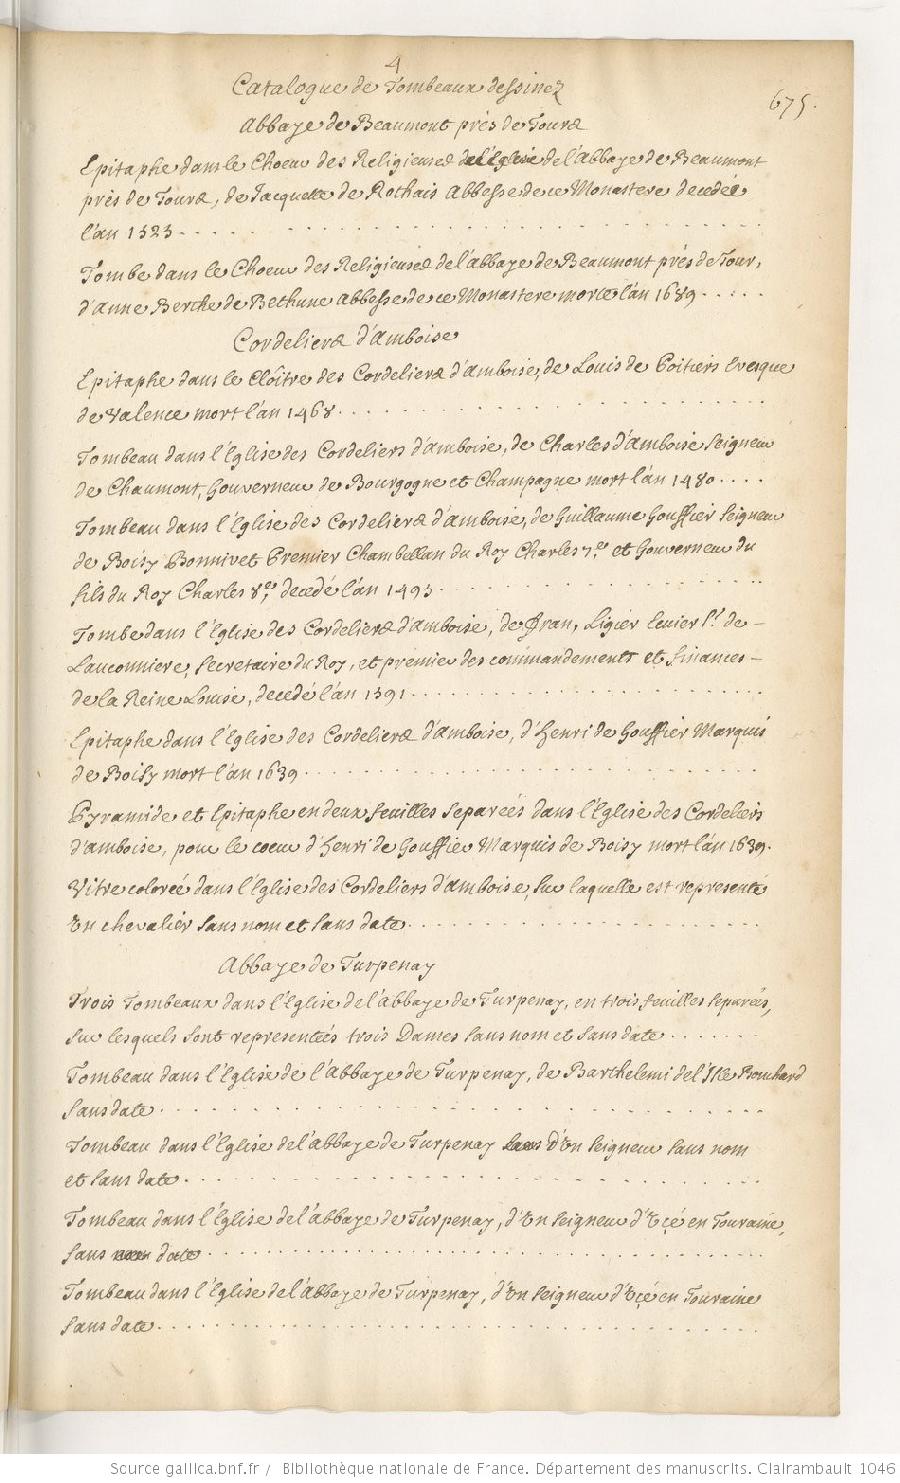 4
Catalogue de Tombeaux dessinez
675.
Abbaye de Beaumont prés de Tours
Epitaphe dans le Choeur des Religieuses de l'Abbaye de Beaumont
près de Tours, de Jacquette de Rothais Abbesse de ce Monastere decedée
l'an 1523
Tombe dans le Choeur des Religieuses de l'abbaye de Beaumont prés de Tour,
d'anne Berthe de Bethune abbesse de ce Monastere morte l'an 1689
Cordeliers d'Amboise
Epitaphe dans le Cloître des Cordeliers d'Amboise, de Louis de Poitiers Evesque
de Valence mort l'an 1468
Tombeau dans l'Eglise des Cordeliers d'amboise, de Charles d'amboise Seigneur
de Chaumont, Gouverneur de Bourgogne et Champagne mort l'an 1480
Tombeau dans l'Eglise des Cordeliers d'amboise, de Guillaume Gouffier Seigneur
de Boisy Bonnivet Premier Chambellan du Roy Charles 7.e et Gouverneur du
fils du Roy Charles 8.e, decedé l'an 1495
Tombe dans l'Eglise des Cordeliers d'amboise, de Fran, Ligier Sr. de
Secretaire du Roy, et premier des commandements et finances
de la Reine Louise, decedé l'an 1591
Epitaphe dans l'Eglise des Cordeliers d'amboise, d'henri de Gouffier Marquis
de Boisy mort l'an 1639
Pyramide et Epitaphe en deux feuilles separeés dans l'Eglise des Cordeliers
d'amboise, pour le coeur d'henri de Gouffier Marquis de Boisy mort l'an 1639.
Vitre colorée dans l'Eglise des Cordeliers d'amboise, sur laquelle est representé
un chevalier sans nom et sans date
Abbaye de Turpenay
Trois Tombeaux dans l'Eglise de l'abbaye de Turpenay, en trois feuilles separées,
sur lesquels sont representés trois Dames sans nom et sans date
Tombeau dans l'Eglise de l'Abbaye de Turpenay, de Barthelemi de l'Isle Bouchard
sans date
Tombeau dans l'Eglise de l'abbaye de Turpenay d'un seigneur sans nom
et sans date
Tombeau dans l'Eglise de l'abbaye de Turpenay, d'un seigneur d'Uçé en Touraine,
sans date
Tombeau dans l'Eglise de l'abbaye de Turpenay, d'un seigneur d'Uçé en Touraine
sans date
Source gallica.bnf.fr / Bibliothèque nationale de France. Département des manuscrits. Clairambault 1046